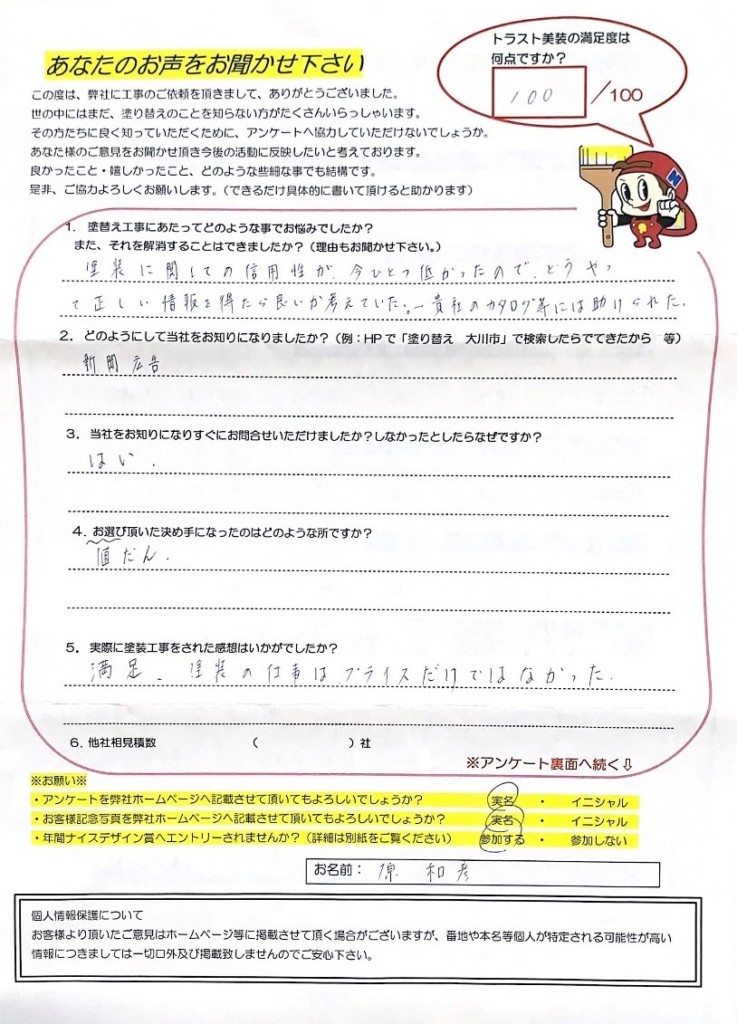 あなたのお声をお聞かせ下さい
トラスト美装の満足度は
何点ですか？
100 ／100
この度は、弊社に工事のご依頼を頂きまして、ありがとうございました。
世の中にはまだ、塗り替えのことを知らない方がたくさんいらっしゃいます。
その方たちに良く知っていただくために、アンケートへ協力していただけないでしょうか。
あなた様のご意見をお聞かせ頂き今後の活動に反映したいと考えております。
良かったこと・嬉しかったこと、どのような些細な事でも結構です。
是非、ご協力よろしくお願いします。（できるだけ具体的に書いて頂けると助かります）
N
1. 塗替え工事にあたってどのような事でお悩みでしたか？
また、それを解消することはできましたか？（理由もお聞かせ下さい。）
塗装に関しての信用性が、今ひとつ低かったので、どうやっ
て正しい情報を得たら良いか考えていた。ー貴社のカタログ等には助けられた.
2. どのようにして当社をお知りになりましたか？（例：HPで「塗り替え　大川市」で検索したらでてきたから　等）
新聞広告
3. 当社をお知りになりすぐにお問合せいただけましたか？しなかったとしたらなぜですか？
はい.
4. お選び頂いた決め手になったのはどのような所ですか？
値だん.
5. 実際に塗装工事をされた感想はいかがでしたか？
満足. 塗装の仕事はプライスだけではなかった.
6. 他社相見積数　（　　　）社
※アンケート裏面へ続く⇩
※お願い※
・アンケートを弊社ホームページへ記載させて頂いてもよろしいでしょうか？　実名　・　イニシャル
・お客様記念写真を弊社ホームページへ記載させて頂いてもよろしいでしょうか？　実名　・　イニシャル
・年間ナイスデザイン賞へエントリーされませんか？（詳細は別紙をご覧ください）　参加する　・　参加しない
お名前：　原　和彦
個人情報保護について
お客様より頂いたご意見はホームページ等に掲載させて頂く場合がございますが、番地や本名等個人が特定される可能性が高い
情報につきましては一切口外及び掲載致しませんのでご安心下さい。